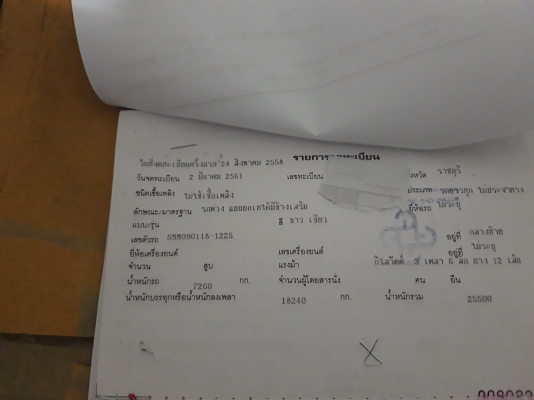 รายการจดทะเบียน
วันที่จดทะเบียนครั้งแรก 24 สิงหาคม 2558
วันจดทะเบียน 2 มีนาคม 2561 เลขทะเบียน จังหวัด ราชบุรี
ชนิดเชื้อเพลิง ไม่ใช้เชื้อเพลิง ประเภท รถบรรทุก ไม่ประจำทาง
ลักษณะ/มาตรฐาน รถพ่วง ยี่ห้อรถ ไม่ระบุ
แบบ/รุ่น สี ขาว เขียว
เลขตัวรถ SMM090118-1225 อยู่ที่ กลางซ้าย
ยี่ห้อเครื่องยนต์ เลขเครื่องยนต์ อยู่ที่ ไม่ระบุ
จำนวน สูบ แรงม้า กิโลวัตต์ 3 เพลา 6 ล้อ ยาง 12 เส้น
น้ำหนักรถ 7260 กก. จำนวนผู้โดยสารนั่ง คน ยืน
น้ำหนักบรรทุกหรือน้ำหนักลงเพลา 18240 กก. น้ำหนักรวม 25500